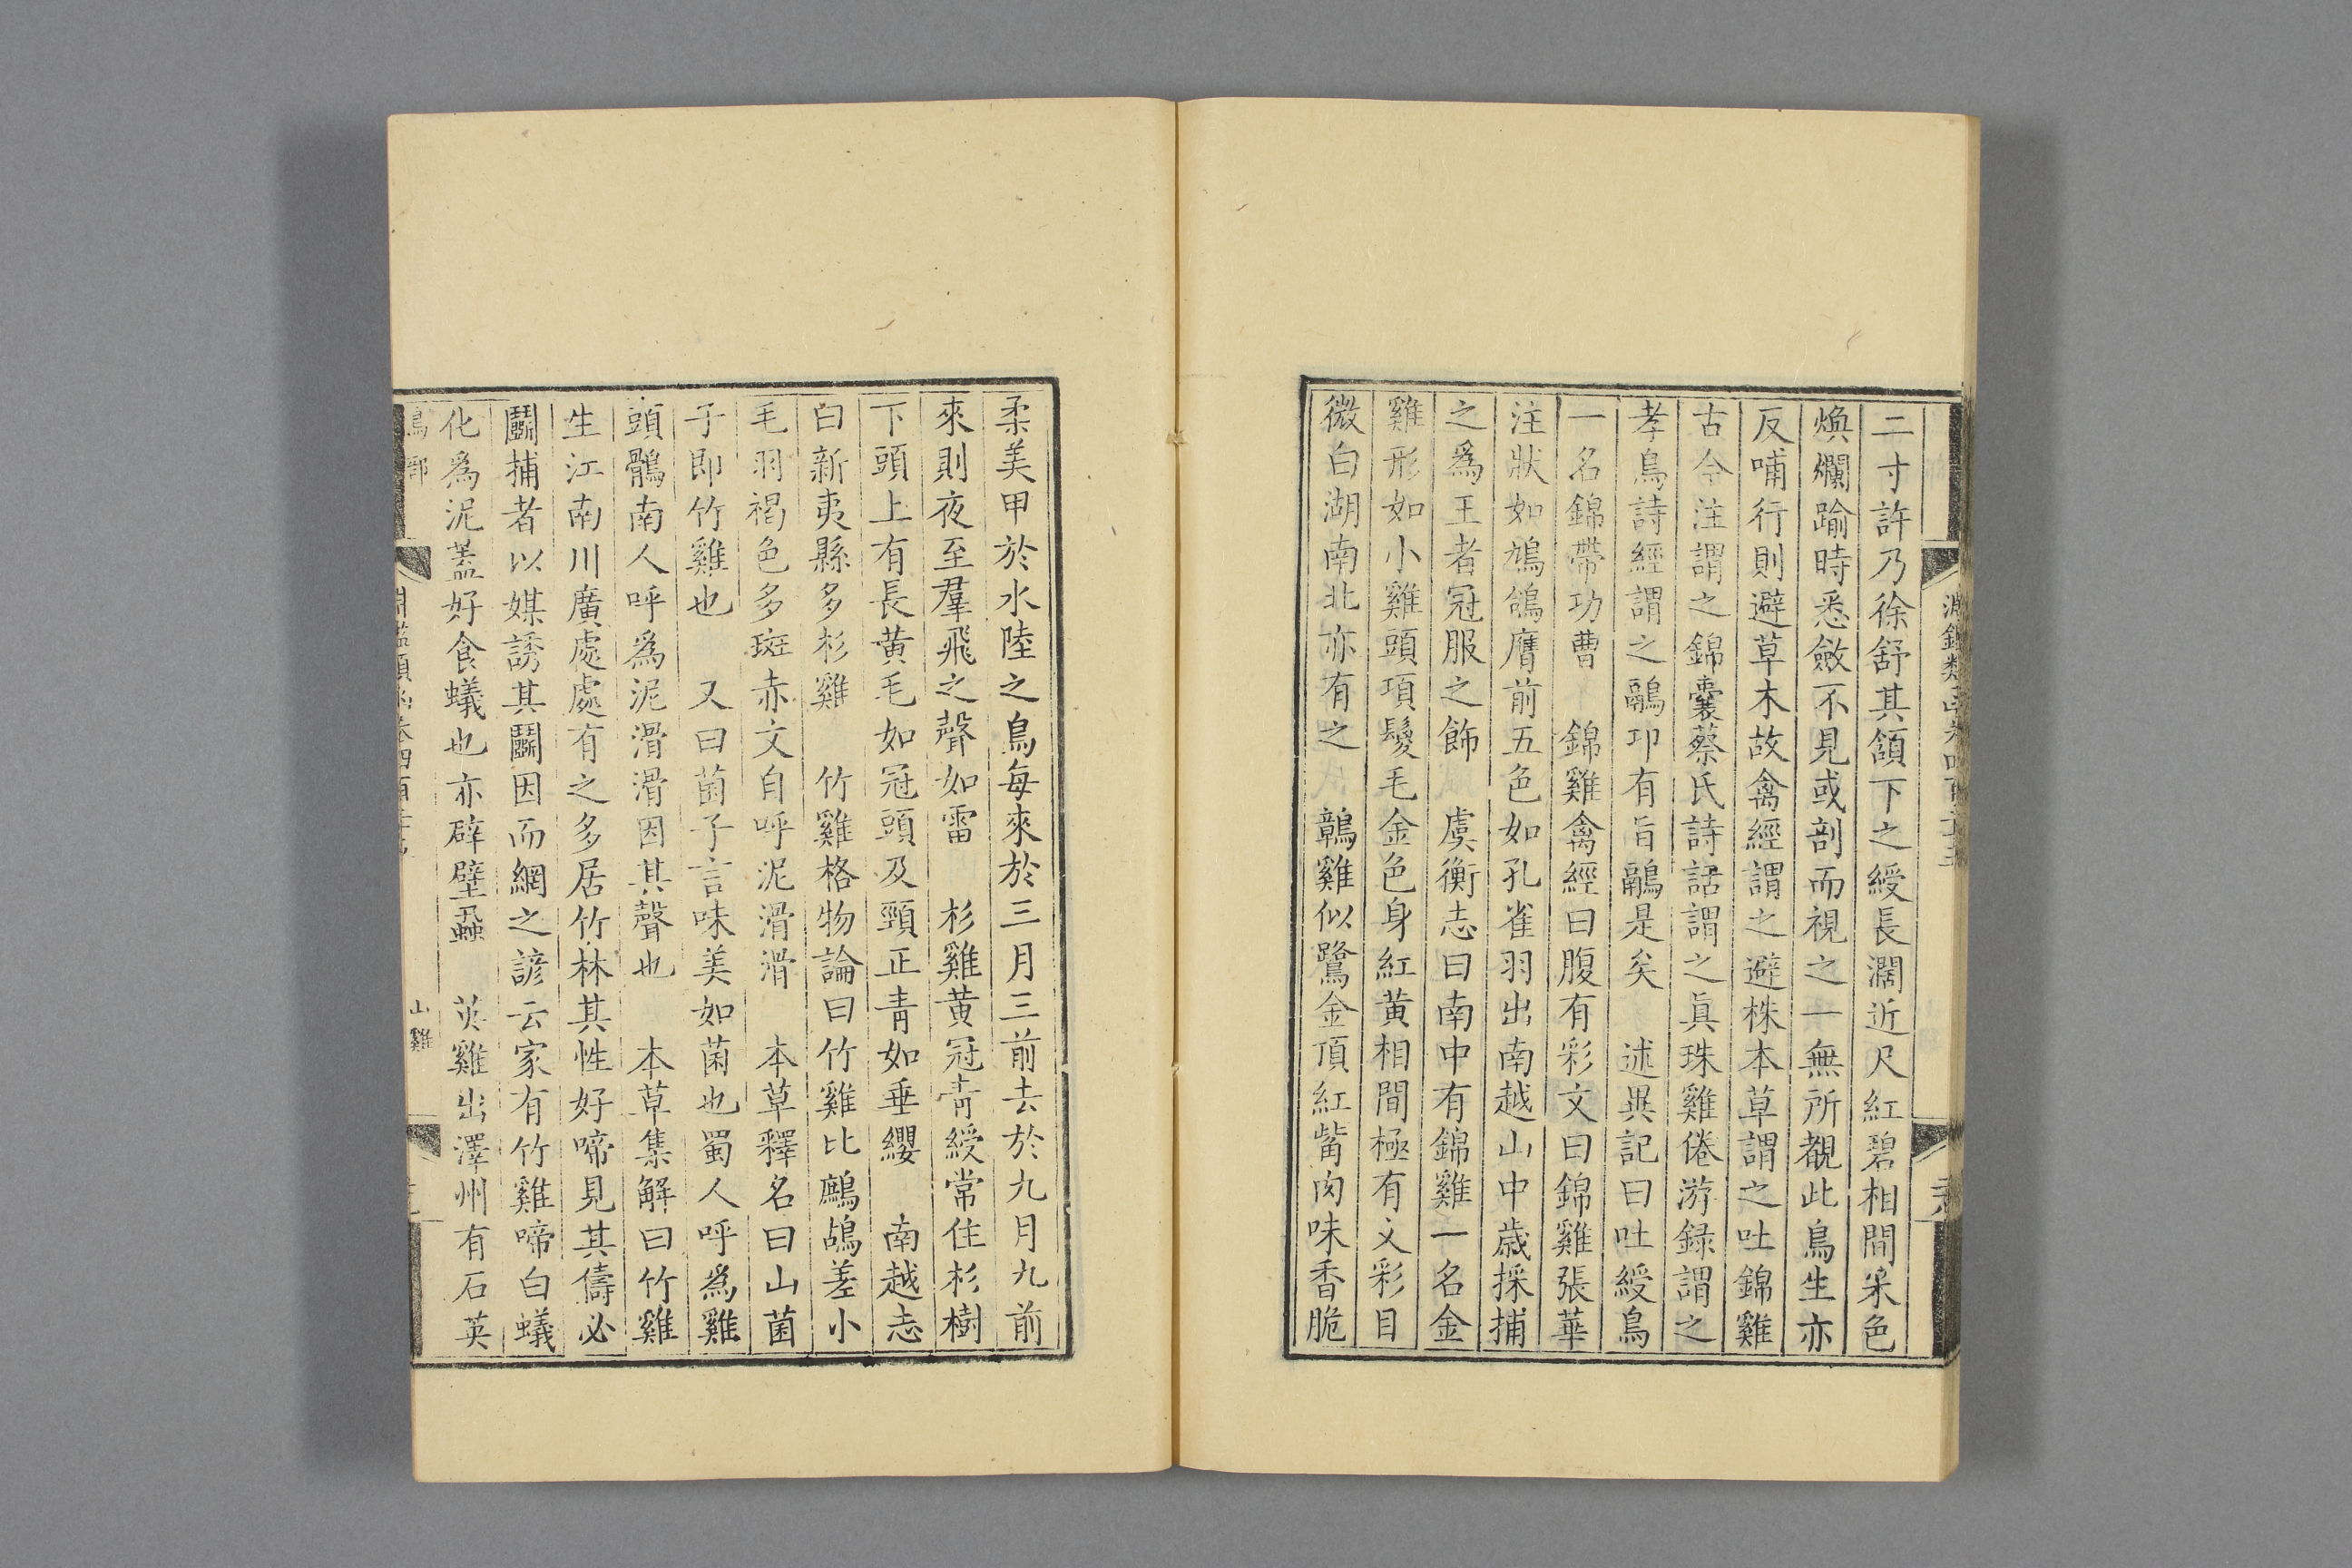 二寸許乃徐舒其頷下之綬長濶近尺紅碧相間采色
煥爛踰時悉斂不見或剖而視之一無所覩此鳥生亦
反哺行則避草木故禽經謂之避株本草謂之吐錦雞
古今注謂之錦囊蔡氏詩話謂之眞珠雞倦游録謂之
孝鳥詩經謂之鷊卭有旨鷊是矣　述異記曰吐綬鳥
一名錦帶功曹　錦雞禽經曰腹有彩文曰錦雞張華
注狀如鳩鴿膺前五色如孔雀羽出南越山中歲採捕
之爲王者冠服之飾　虞衡志曰南中有錦雞一名金
雞形如小雞頭項鬉毛金色身紅黄相間極有文彩目
微白湖南北亦有之　鶕雞似鷺金頂紅觜肉味香脆
柔美甲於水陸之鳥每來於三月三前去於九月九前
來則夜至羣飛之聲如雷　杉雞黄冠青綬常住杉樹
下頭上有長黄毛如冠頭及頸正青如垂纓　南越志
曰新夷縣多杉雞　竹雞格物論曰竹雞比鷓鴣差小
毛羽褐色多斑赤文自呼泥滑滑　本草釋名曰山菌
子即竹雞也　又曰菌子言味美如菌也蜀人呼爲雞
頭鶻南人呼爲泥滑滑因其聲也　本草集解曰竹雞
生江南川廣處處有之多居竹林其性好啼見其儔必
鬭捕者以媒誘其鬭因而網之諺云家有竹雞啼白蟻
化爲泥蓋好食蟻也亦辟壁蝨　英雞出澤州有石英
鳥部
山雞